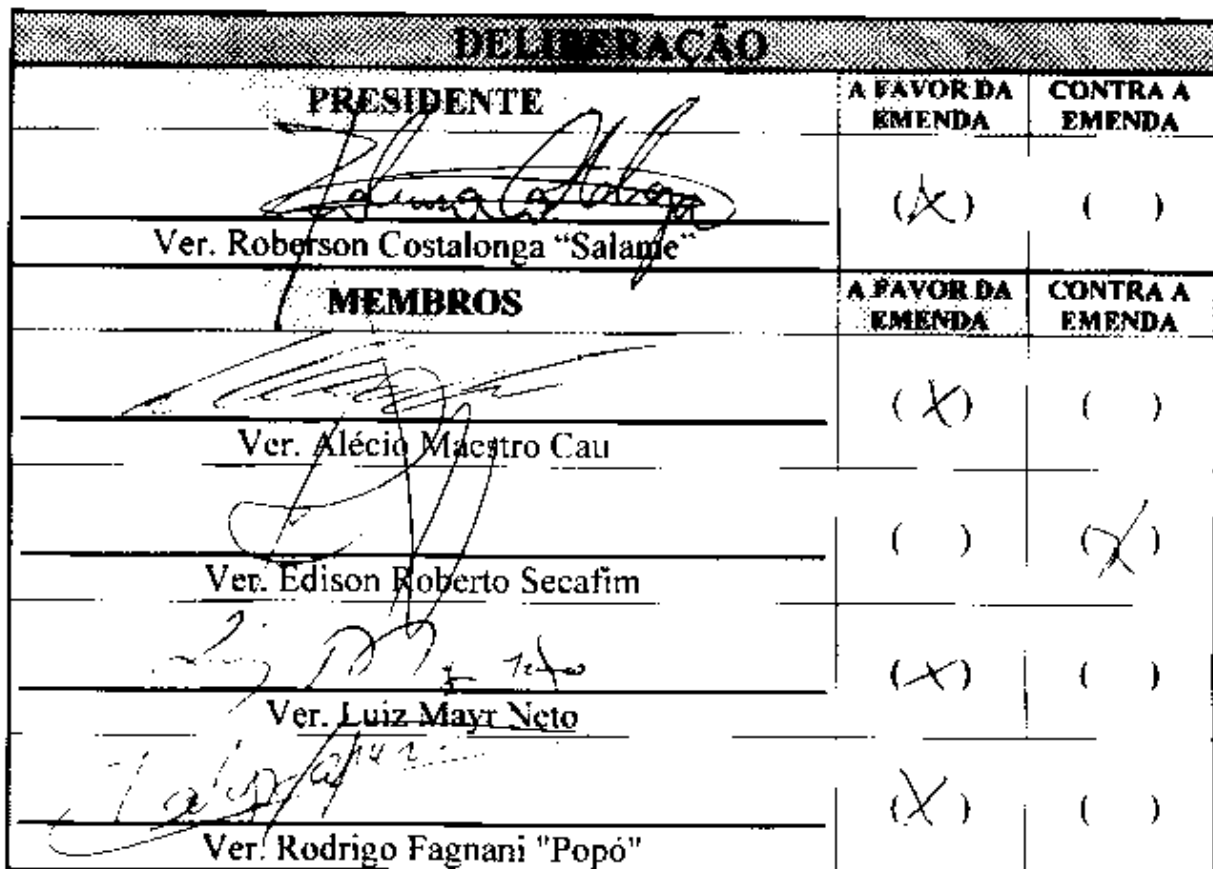 DELIBERAÇÃO
PRESIDENTE A FAVOR DA EMENDA CONTRA A EMENDA
(X) ( )
Ver. Roberson Costalonga “Salame“
MEMBROS A FAVOR DA EMENDA CONTRA A EMENDA
(X) ( )
Ver. Alécio Maestro Cau
( ) (X)
Ver. Edison Roberto Secafim
(X) ( )
Ver. Luiz Mayr Neto
(X) ( )
Ver. Rodrigo Fagnani "Popó"